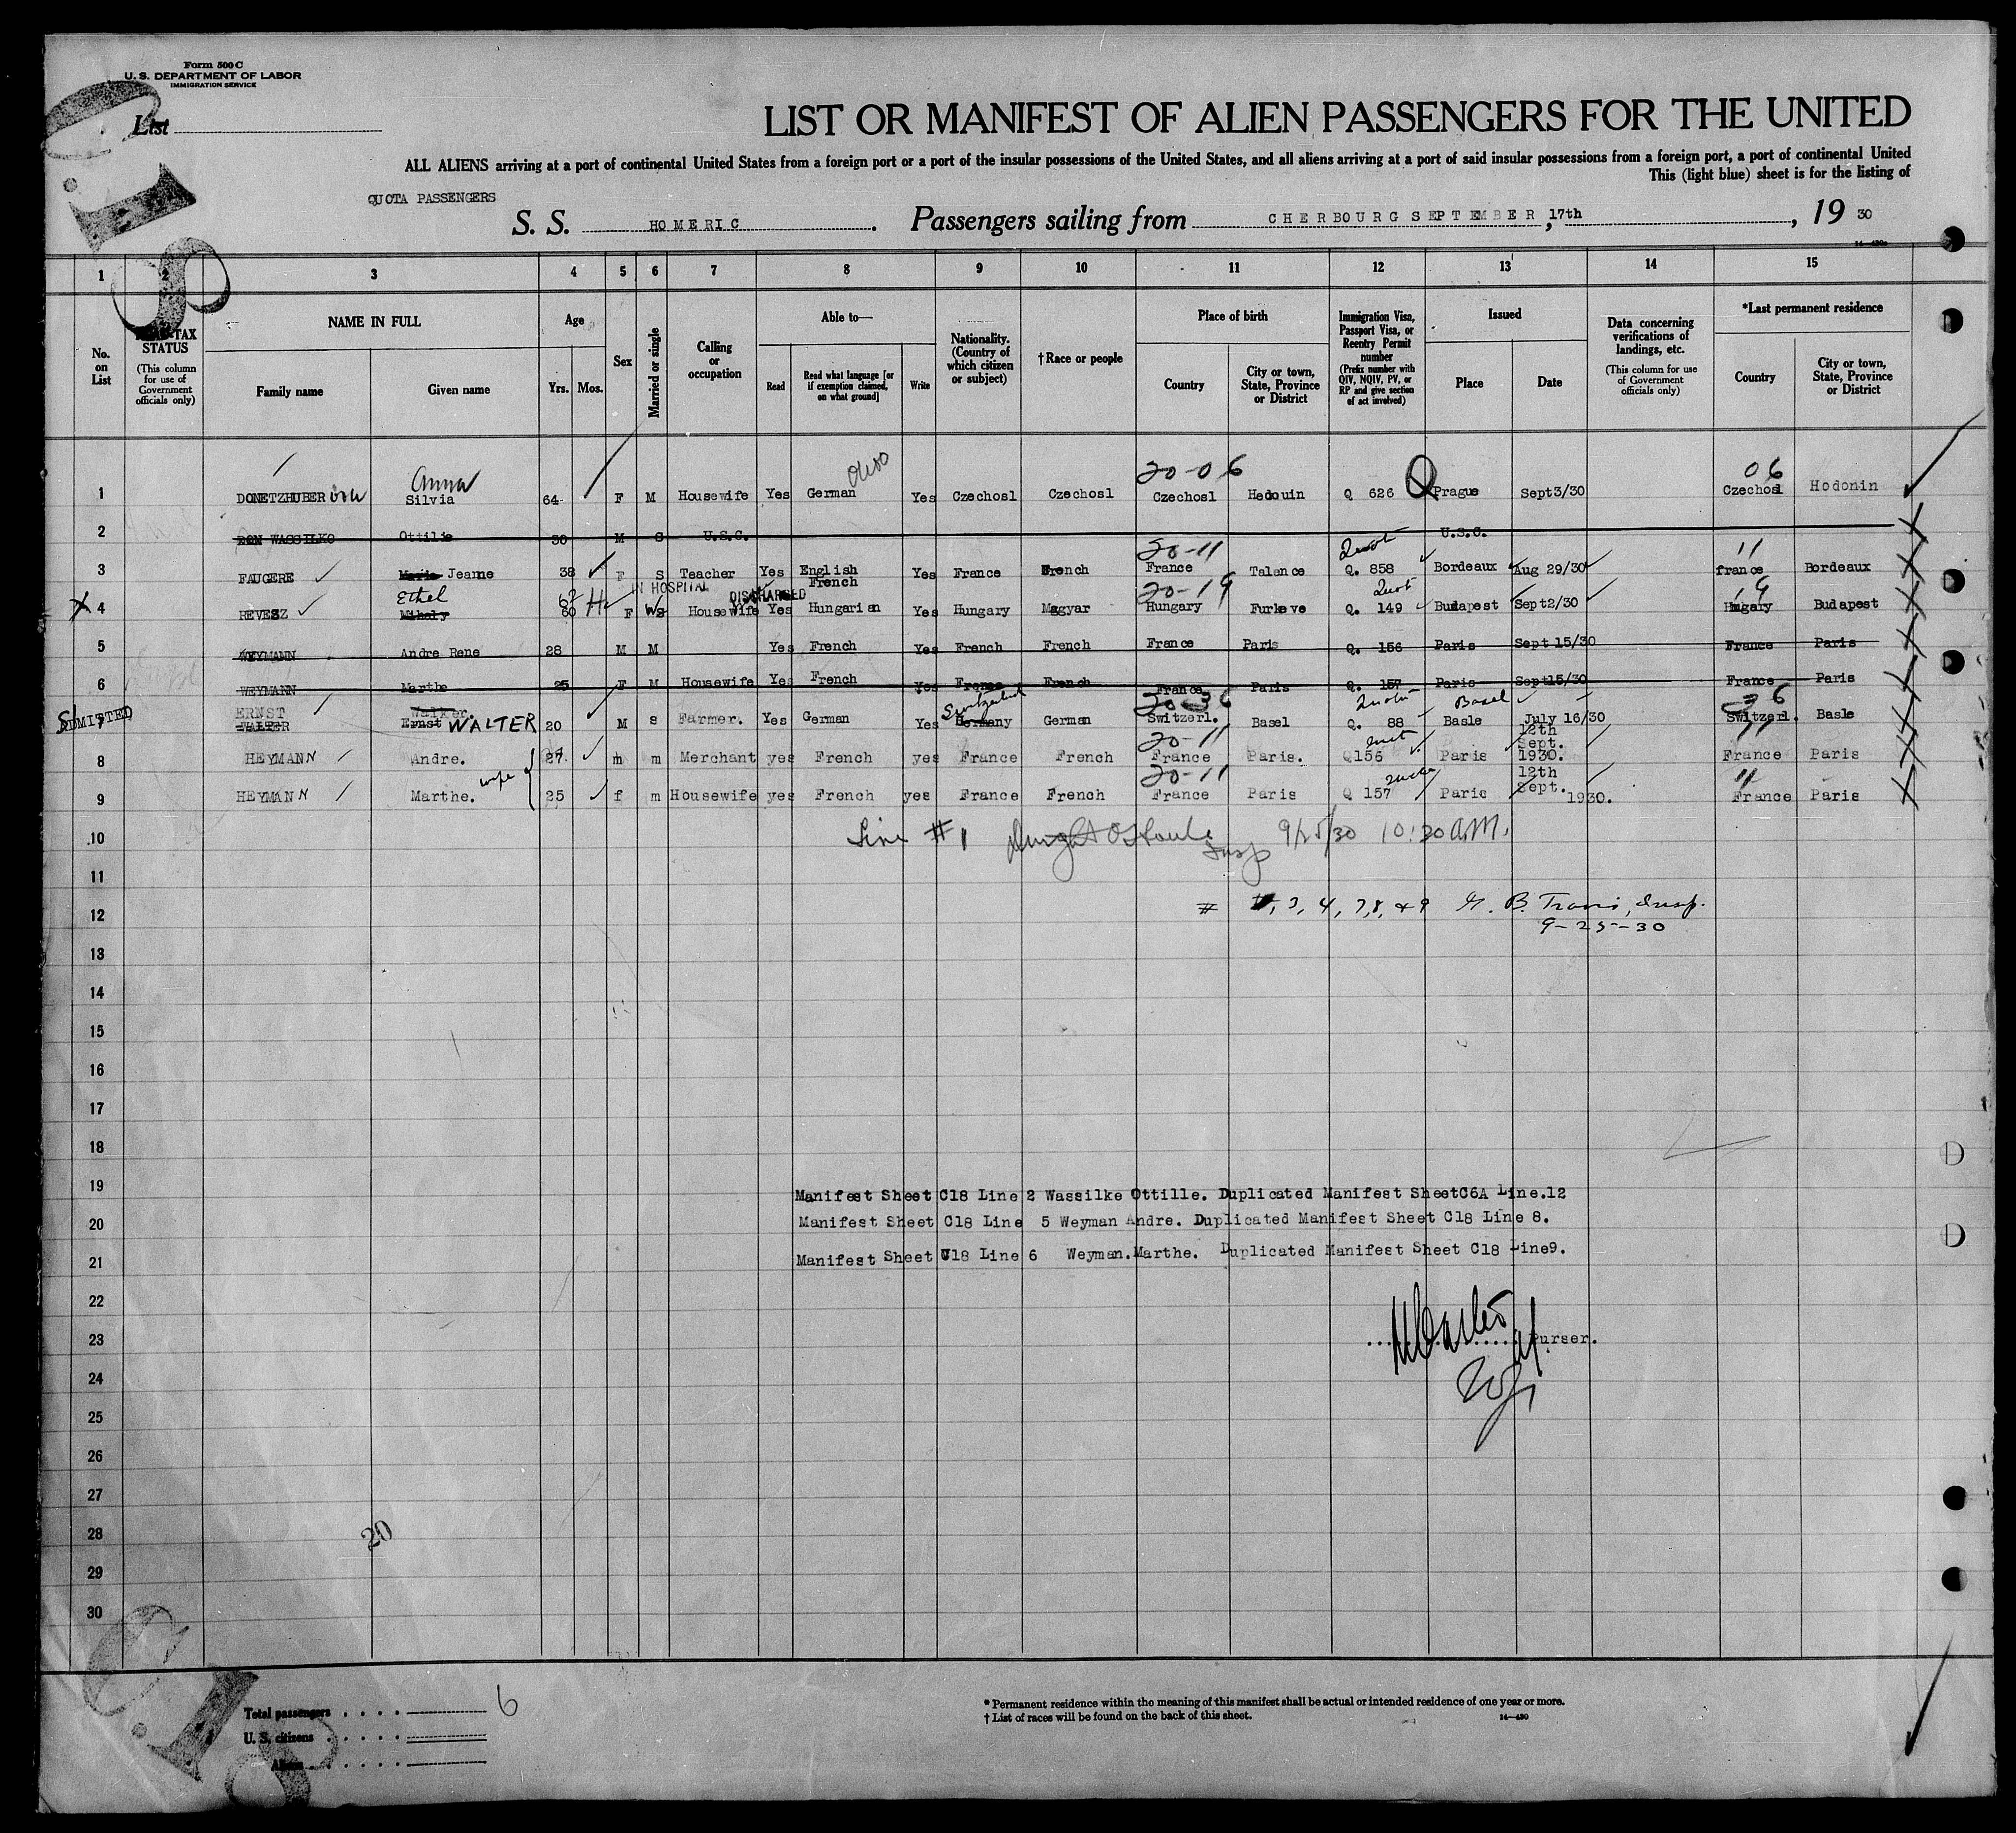 Form 500 C
U. S. DEPARTMENT OF LABOR
IMMIGRATION SERVICE
C 18
List
LIST OR MANIFEST OF ALIEN PASSENGERS FOR THE UNITED
ALL ALIENS arriving at a port of continental United States from a foreign port or a port of the insular possessions of the United States, and all aliens arriving at a port of said insular possessions from a foreign port, a port of continental United
This (light blue) sheet is for the listing of
QUOTA PASSENGERS
S. S. HOMERIC. Passengers sailing from CHERBOURG SEPTEMBER, 17th, 19 30
14—430a
1 2 3 4 5 6 7 8 9 10 11 12 13 14 15
No. on List
HEAD-TAX STATUS (This column for use of Government officials only)
NAME IN FULL Family name Given name
Age Yrs. Mos.
Sex
Married or single
Calling or occupation
Able to— Read Read what language [or if exemption claimed, on what ground] Write
Nationality. (Country of which citizen or subject)
†Race or people
Place of birth Country City or town, State, Province or District
Immigration Visa, Passport Visa, or Reentry Permit number (Prefix number with QIV, NQIV, PV, or RP and give section of act involved)
Issued Place Date
Data concerning verifications of landings, etc. (This column for use of Government officials only)
*Last permanent residence Country City or town, State, Province or District
Anna 20-06 06
1 DONETZHUBER Silvia 64 F M Housewife Yes German Yes Czechosl Czechosl Czechosl Hedouin Q 626 Prague Sept3/30 Czechosl Hodonin
2 EON WASSILKO Ottilie 30 M S U.S.C. U.S.C.
20-11 Quot 11
3 FAUGERE Marie Jeanne 38 F S Teacher Yes English French Yes France French France Talance Q. 858 Bordeaux Aug 29/30 france Bordeaux
Ethel 62 H IN HOSPITAL DISCHARGED 20-19 Quot 19
4 REVESZ Mihaly 60 F W S Housewife Yes Hungarian Yes Hungary Magyar Hungary Furkeve Q. 149 Budapest Sept2/30 Hugary Budapest
5 WEYMANN Andre Rene 28 M M Yes French Yes French French France Paris Q. 156 Paris Sept 15/30 France Paris
6 WEYMANN Marthe 25 F M Housewife Yes French Yes France French France Paris Q. 157 Paris Sept15/30 France Paris
SI ADMITTED ERNST Walker. Switzerland 20-36 Quota Basel 36
7 WALTER Ernst WALTER 20 M S Farmer. Yes German Yes Germany German Switzerl. Basel Q. 88 Basle July 16/30 Switzerl. Basle
20-11 Quot 12th Sept. 11
8 HEYMANN Andre. 27 m m Merchant yes French yes France French France Paris. Q156 Paris 1930. France Paris
wife of 20-11 Quota 12th Sept. 11
9 HEYMANN Marthe. 25 f m Housewife yes French yes France French France Paris Q 157 Paris 1930. France Paris
10 Line #1 Insp 9/25/30 10:30 A.M.
11
12 # 3, 4, 7, 8, & 9 G. B. Travis, Insp.
9-25-30
13
14
15
16
17
18
19 Manifest Sheet C18 Line 2 Wassilke Ottille. Duplicated Manifest SheetC6A Line.12
20 Manifest Sheet C18 Line 5 Weyman Andre. Duplicated Manifest Sheet C18 Line 8.
21 Manifest Sheet C18 Line 6 Weyman.Marthe. Duplicated Manifest Sheet C18 Line9.
22
23 Purser.
24
25
26
27
28 20
29
30
C 18
Total passengers 6
U. S. citizens
Aliens
* Permanent residence within the meaning of this manifest shall be actual or intended residence of one year or more.
† List of races will be found on the back of this sheet.
14—430